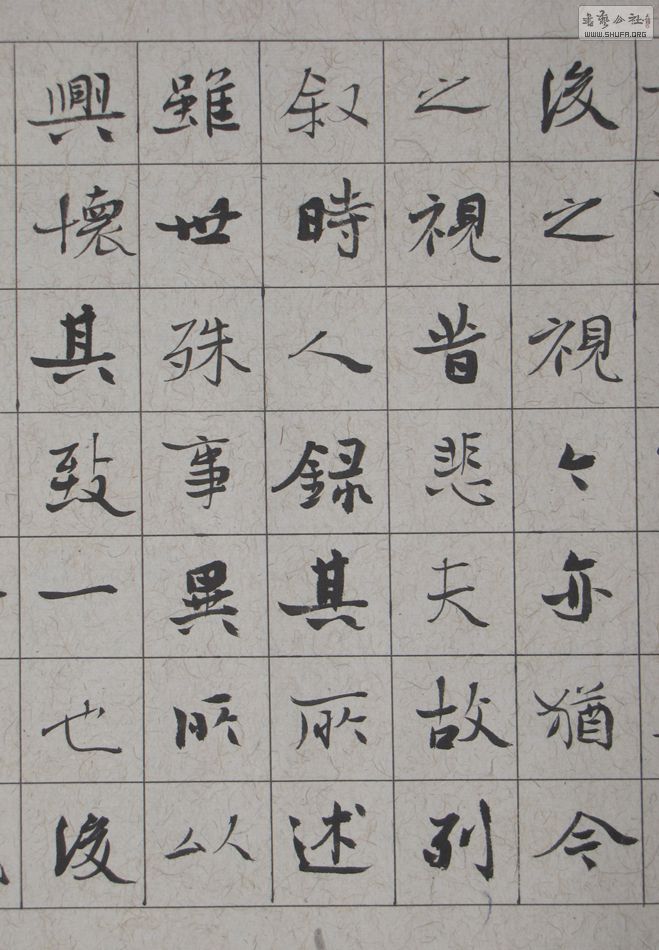 後之視今亦猶今
之視昔悲夫故列
叙時人録其所述
雖世殊事異所以
興懷其致一也後
书艺公社
WWW.SHUFA.ORG